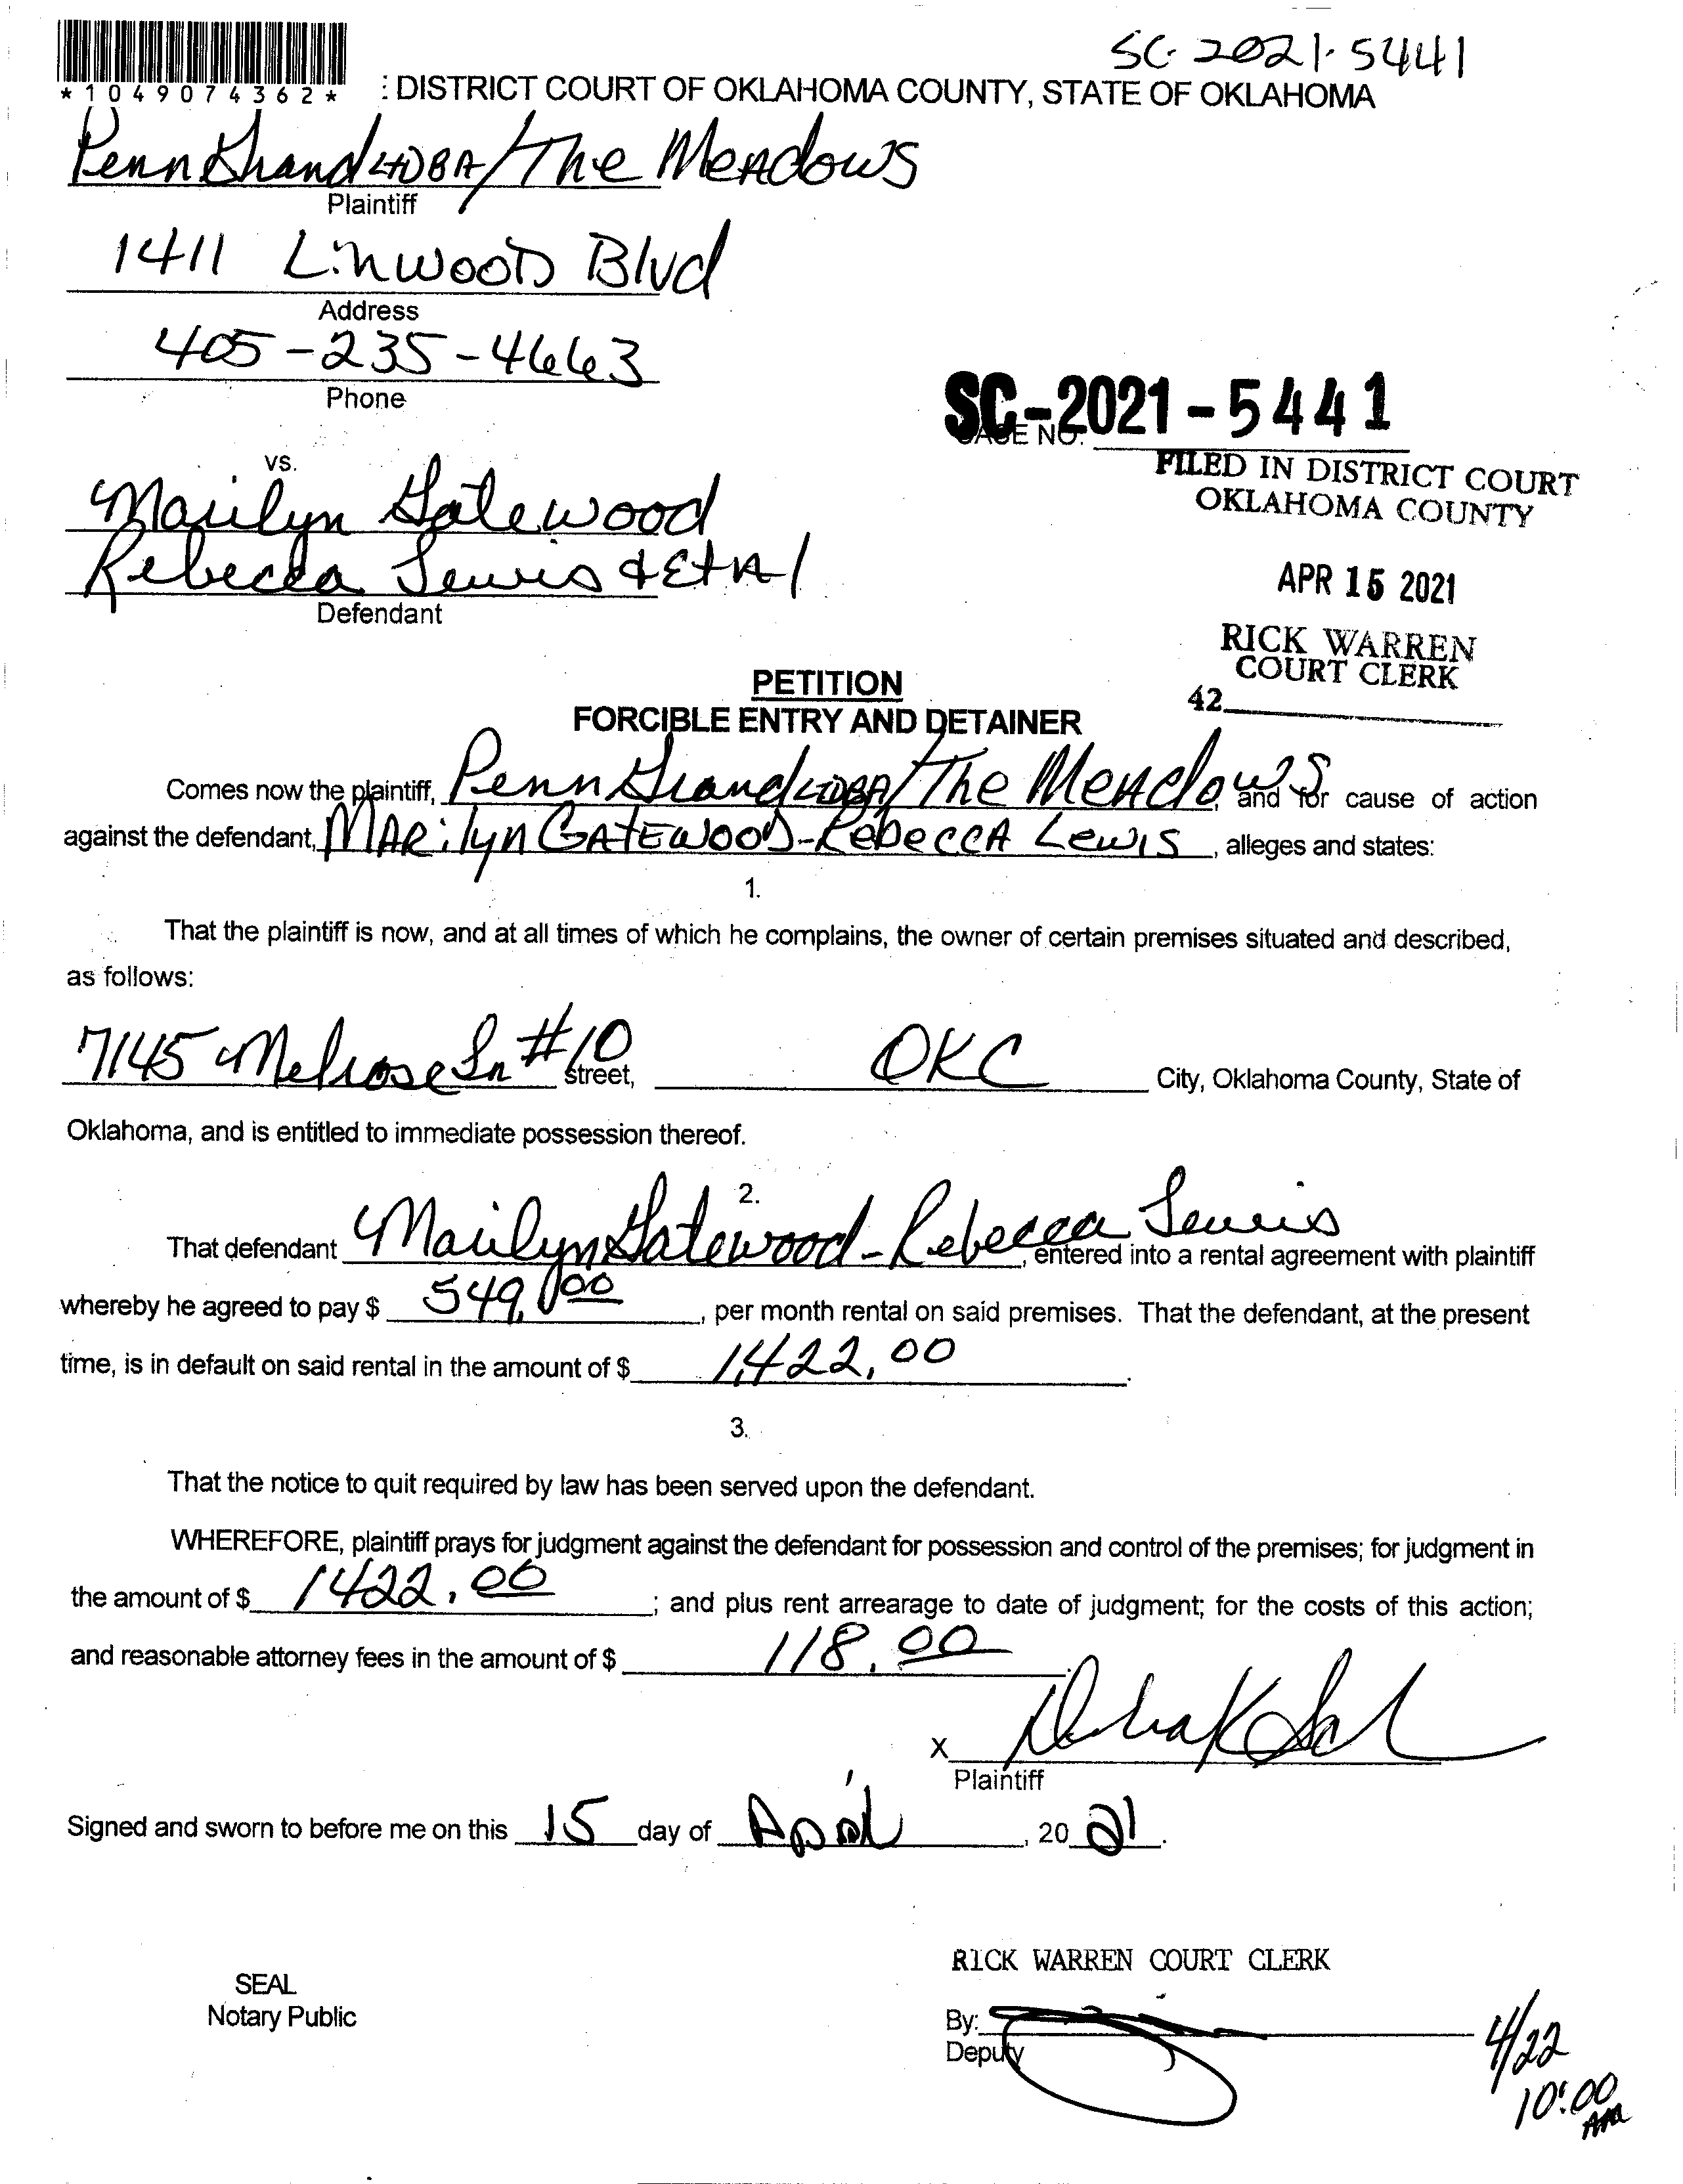 SC-2021-5441
*1049074362*
: DISTRICT COURT OF OKLAHOMA COUNTY, STATE OF OKLAHOMA
Penn Grand LTD DBA/The Meadows
Plaintiff
1411 Linwood Blvd
Address
405-235-4663
Phone
SC-2021-5441
CASE NO.
FILED IN DISTRICT COURT
OKLAHOMA COUNTY
APR 15 2021
RICK WARREN
COURT CLERK
42
vs.
Marilyn Gatewood
Rebecca Lewis & Et Al
Defendant
PETITION
FORCIBLE ENTRY AND DETAINER
Comes now the plaintiff, Penn Grand LTD DBA/The Meadows, and for cause of action
against the defendant, Marilyn Gatewood-Rebecca Lewis, alleges and states:
1.
That the plaintiff is now, and at all times of which he complains, the owner of certain premises situated and described,
as follows:
7145 Melrose Ln #10 street, OKC City, Oklahoma County, State of
Oklahoma, and is entitled to immediate possession thereof.
2.
That defendant Marilyn Gatewood-Rebecca Lewis, entered into a rental agreement with plaintiff
whereby he agreed to pay $ 549.00, per month rental on said premises. That the defendant, at the present
time, is in default on said rental in the amount of $ 1,422.00.
3.
That the notice to quit required by law has been served upon the defendant.
WHEREFORE, plaintiff prays for judgment against the defendant for possession and control of the premises; for judgment in
the amount of $ 1422.00; and plus rent arrearage to date of judgment; for the costs of this action;
and reasonable attorney fees in the amount of $ 118.00.
X
Plaintiff
Signed and sworn to before me on this 15 day of April, 2021.
SEAL
Notary Public
RICK WARREN COURT CLERK
By:
Deputy
4/22
10:00
AM